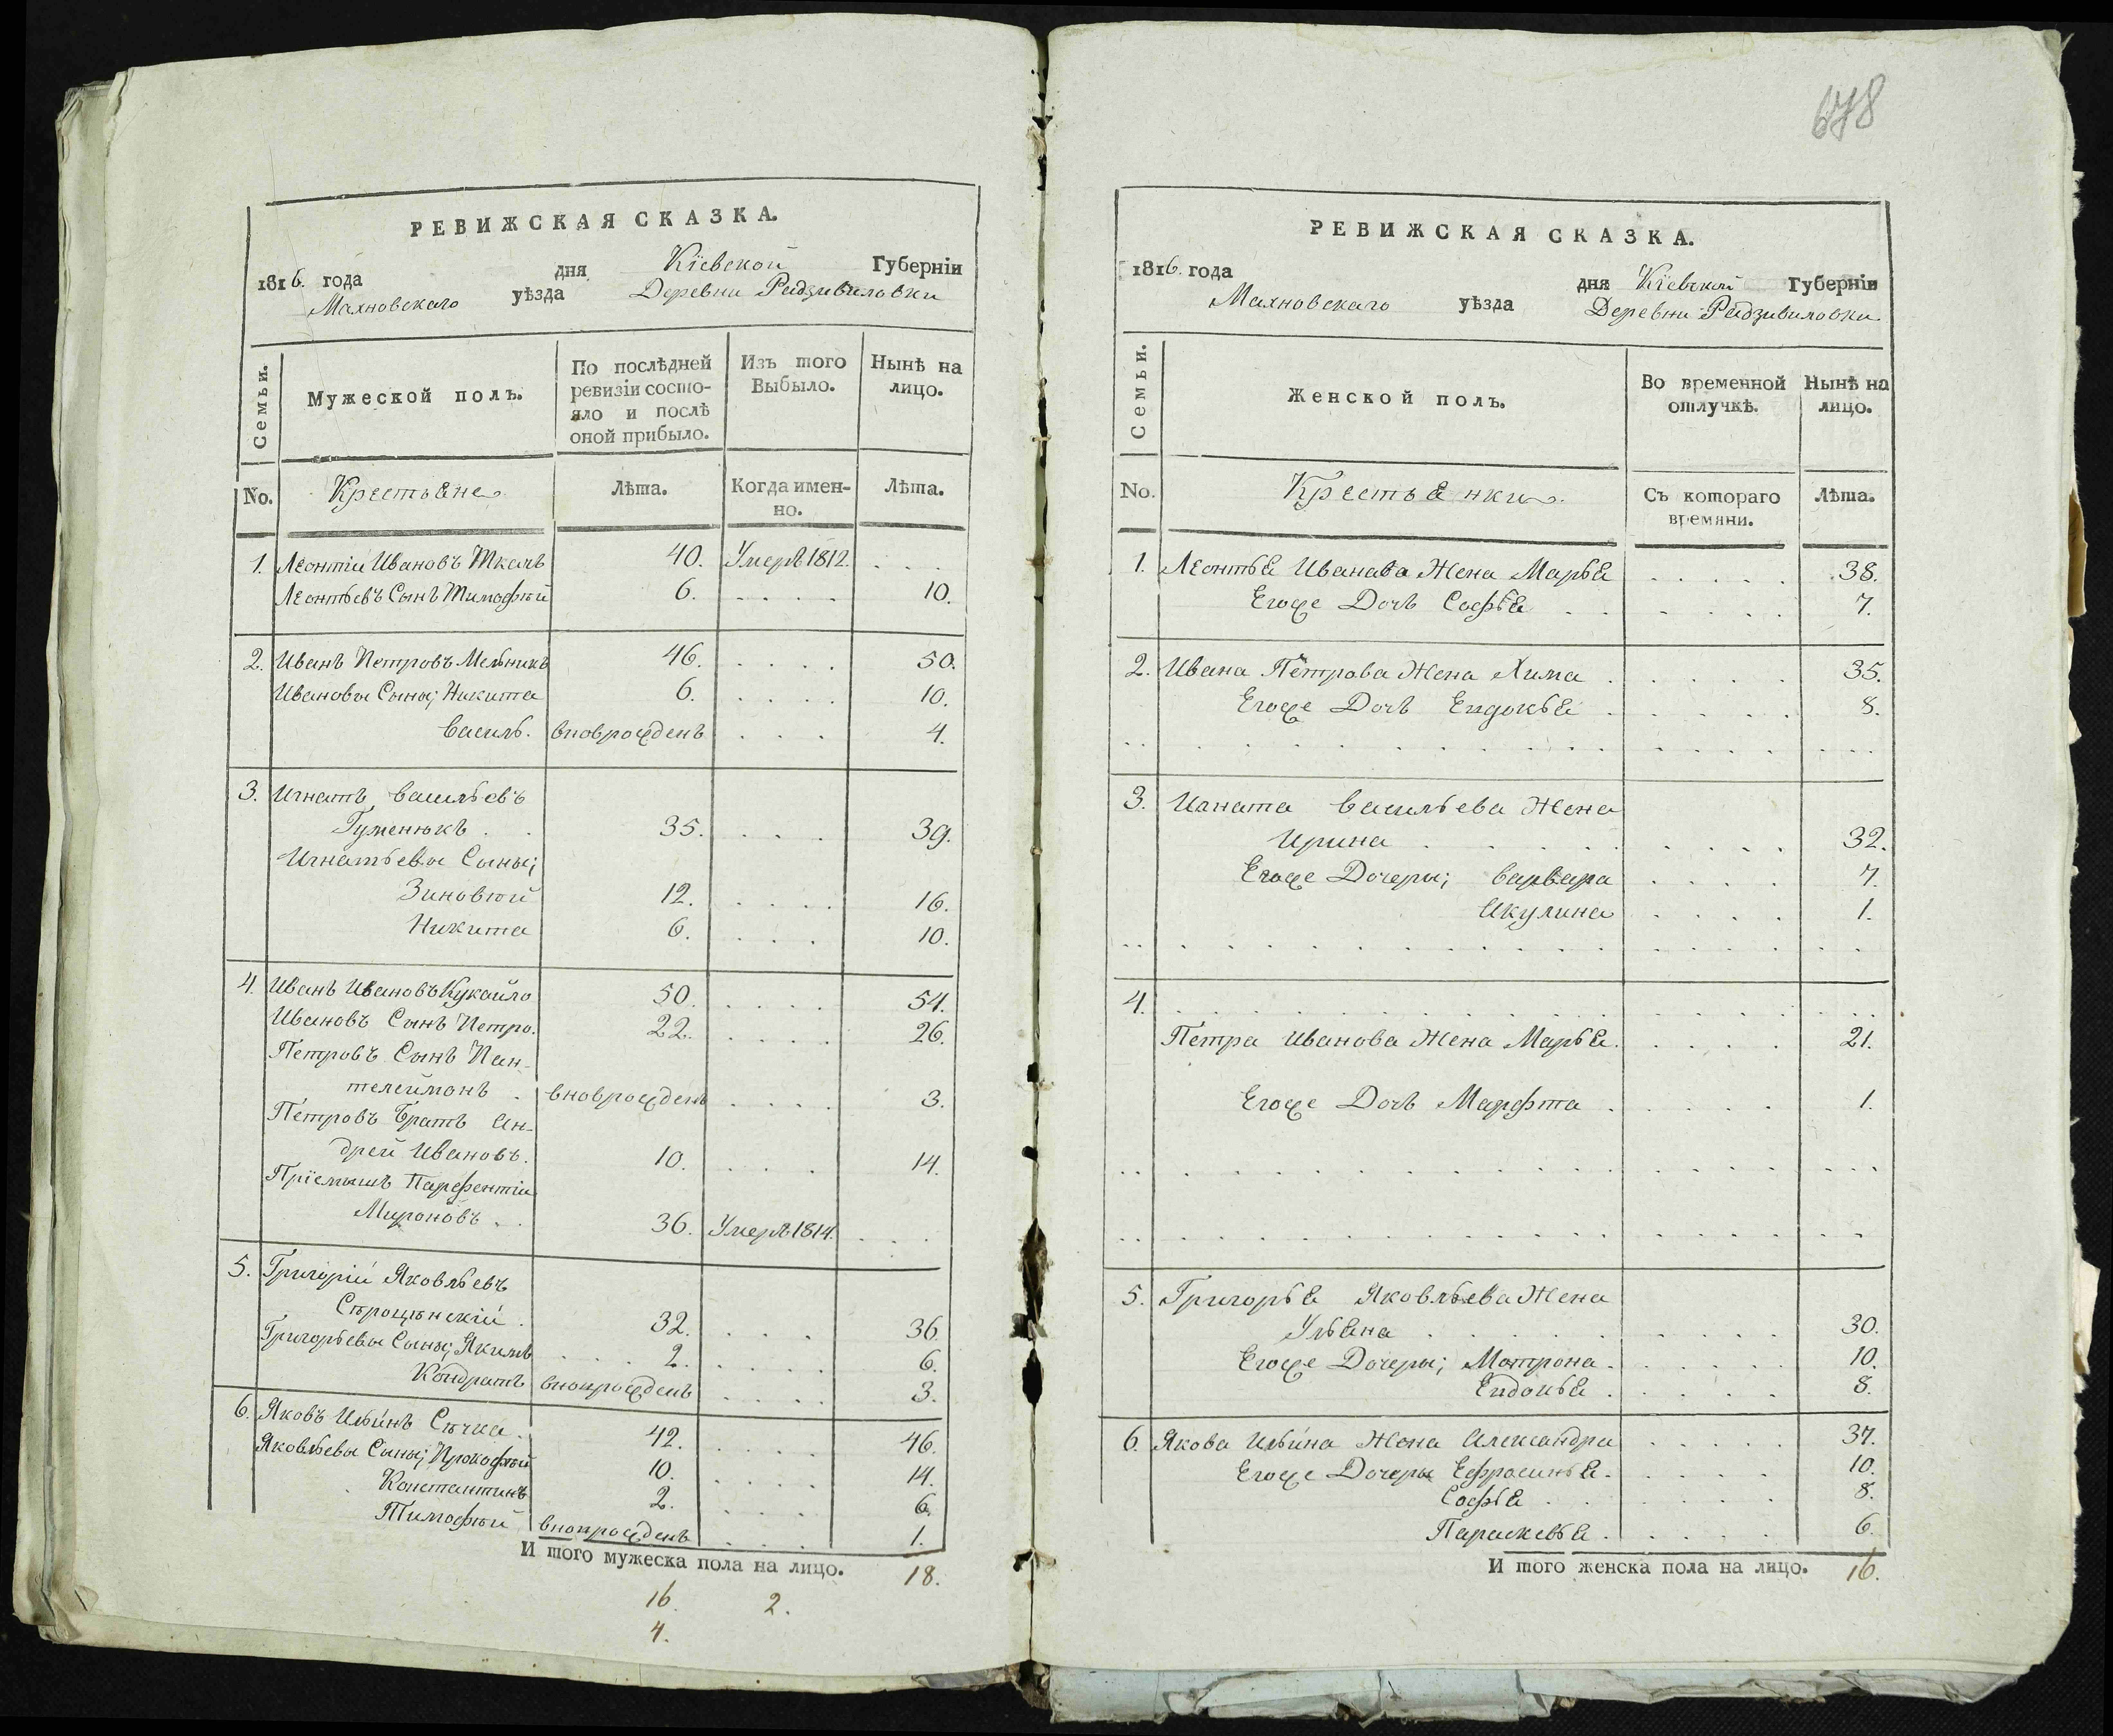 РЕВИЖСКАЯ СКАЗКА.
1816. года дня Кіевской Губерніи
Махновскаго уѣзда Деревни Радзивиловки
Семьи. Мужеской полъ. По послѣдней ревизіи состояло и послѣ оной прибыло. Изъ того Выбыло. Нынѣ на лицо.
No. Крестьяне Лѣта. Когда именно. Лѣта.
1. Леонтіи Ивановъ Ткачъ 40. Умеръ 1812. . . .
Леонтьевъ Сынъ Тимофѣй 6. . . . . 10.
2. Иванъ Петровъ Мельникъ 46. . . . . 50.
Ивановы Сыны; Никита 6. . . . . 10.
Василь. вновърожденъ . . . 4.
3. Игнатъ Васильевъ
Гуменюкъ . . 35. . . . 39.
Игнатьевы Сыны;
Зиновѣй 12. . . . . 16.
Никита 6. . . . 10.
4. Иванъ Ивановъ Кукайло 50. . . . . 54.
Ивановъ Сынъ Петро. 22. . . . . 26.
Петровъ Сынъ Пан-
телеймонъ . вновърожденъ . . . . 3.
Петровъ Братъ Ан-
дрей Ивановъ. 10. . . . 14.
Пріемышъ Парфентіи
Мироновъ . . 36. Умеръ 1814. . . .
5. Григорій Яковлевъ
Строщѣнскій . 32. . . . 36.
Григорьевы Сыны; Якимъ . . . 2. . . . . 6.
Кондратъ вновърожденъ . . . . 3.
6. Яковъ Ильинъ Сѣчка . 42. . . . . 46.
Яковлевы Сыны; Прокофѣй 10. . . . . 14.
Константинъ 2. . . . 6.
Тимофѣй вновърожденъ . . . 1.
И того мужеска пола на лицо. 18.
16. 2.
4.
678
РЕВИЖСКАЯ СКАЗКА.
1816. года дня Кіевской Губерніи
Махновскаго уѣзда Деревни Радзивиловки
Семьи. Женской полъ. Во временной отлучкѣ. Нынѣ на лицо.
No. Крестьянки. Съ котораго времяни. Лѣта.
1. Леонтья Иванова Жена Марья . . . . . 38.
Егоже Дочь Софья . . . . . . 7.
2. Ивана Петрова Жена Хима . . . . . 35.
Егоже Дочь Евдокья . . . . . 8.
3. Игната Васильева Жена
Ирина . . . . . . . . . 32.
Егоже Дочеры; Варвара . . . . 7.
Акулина . . . . 1.
4. . . . . . . . . . . . . . . . . .
Петра Иванова Жена Марья. . . . . 21.
Егоже Дочь Марфта . . . . . 1.
5. Григорья Яковлева Жена
Ульяна . . . . . . . . . 30.
Егоже Дочеры; Мотрона . . . . . . 10.
Евдокья . . . . . 8.
6. Якова Ильина Жена Александра . . . . . 37.
Егоже Дочеры Ефросинья . . . . . 10.
Софья . . . . . . 8.
Параскевья . . . . . 6.
И того женска пола на лицо. 16.